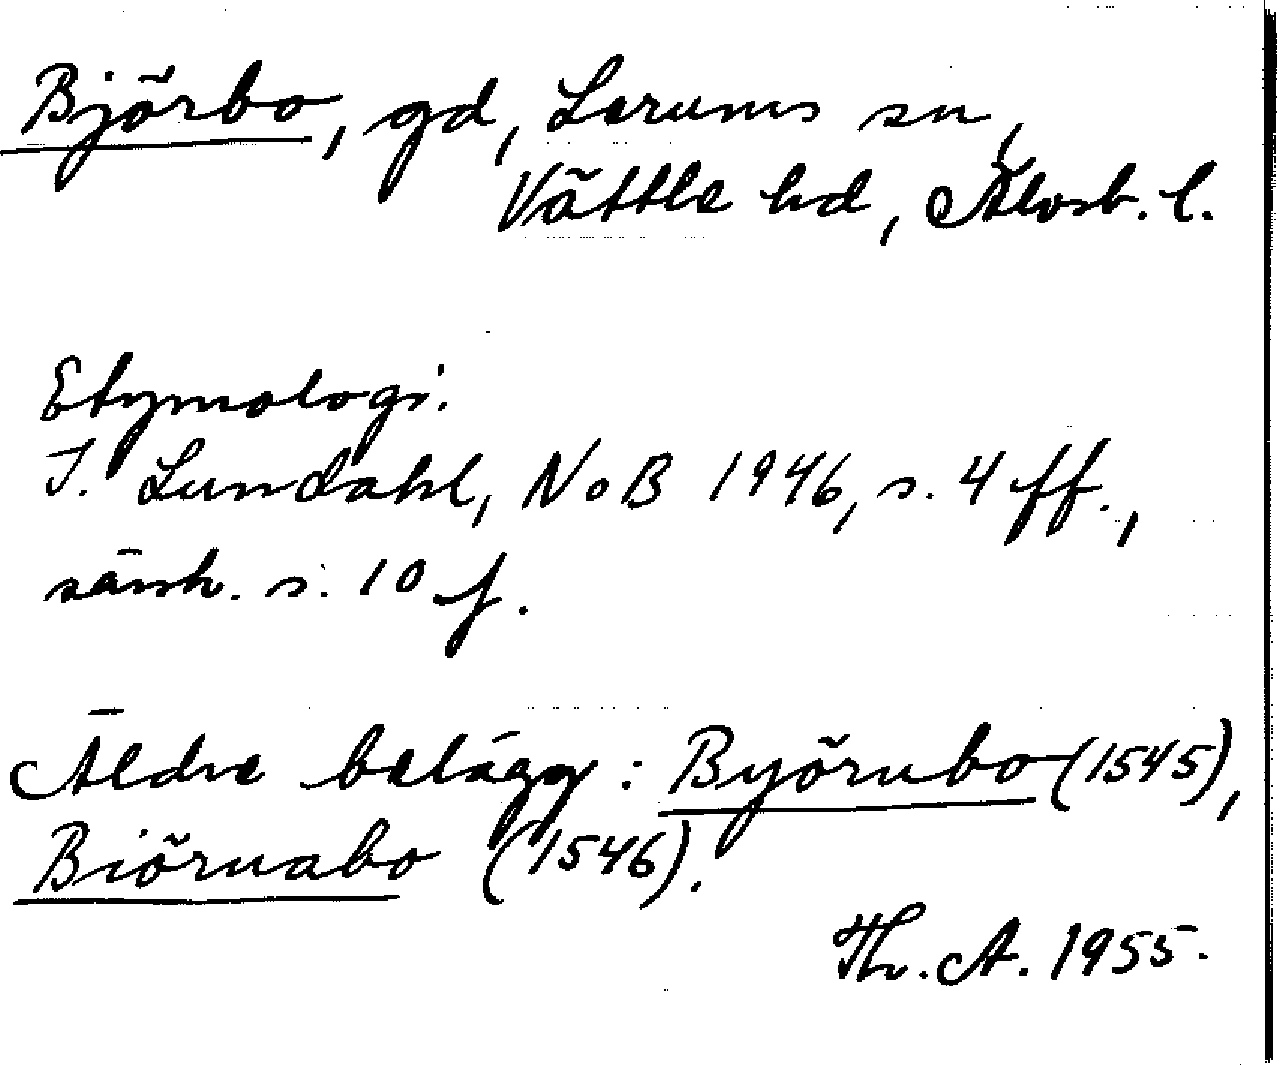 Björbo, gd, Lerums sn,
Vättle hd, Älvsb. l.
Etymologi:
I. Lundahl, NoB 1946, s. 4 ff.,
särsk. s. 10 f.
Äldre belägg: Byörnbo (1545),
Biörnabo (1546).
Th. A. 1955.